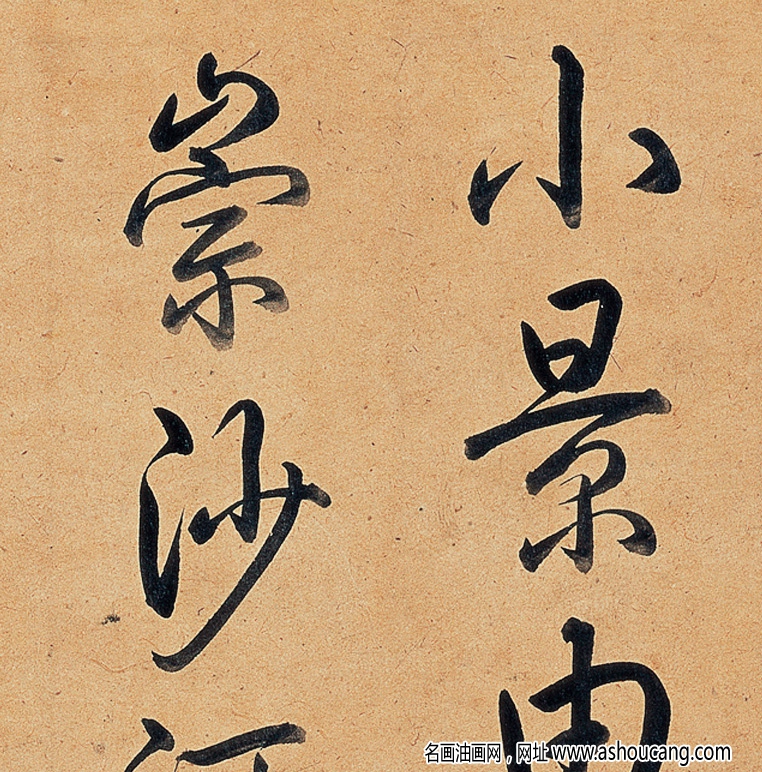 小景由
崇沙
名画油画网，网址 www.ashoucang.com